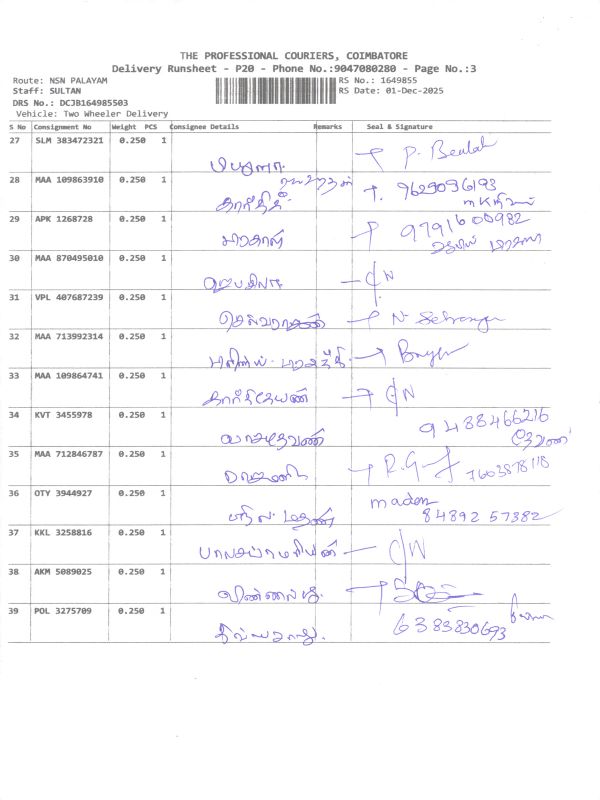 THE PROFESSIONAL COURIERS, COIMBATORE
Delivery Runsheet - P20 - Phone No.:9047080280 - Page No.:3
Route: NSN PALAYAM RS No.: 1649855
Staff: SULTAN RS Date: 01-Dec-2025
DRS No.: DCJB164985503
Vehicle: Two Wheeler Delivery
S No Consignment No Weight PCS Consignee Details Remarks Seal & Signature
27 SLM 383472321 0.250 1 P. Beulah
28 MAA 109863910 0.250 1 கார்த்திக் 9629096193
29 APK 1268728 0.250 1 9791600982
30 MAA 870495010 0.250 1 C/N
31 VPL 407687239 0.250 1 செல்வராகவன்
32 MAA 713992314 0.250 1
33 MAA 109864741 0.250 1 கார்த்திகேயணி C/N
34 KVT 3455978 0.250 1 வாசுதேவண் 9488466216
35 MAA 712846787 0.250 1 R.G 7603878118
36 OTY 3944927 0.250 1 maden
84892 57382
37 KKL 3258816 0.250 1 C/N
38 AKM 5089025 0.250 1
39 POL 3275709 0.250 1 6383830693